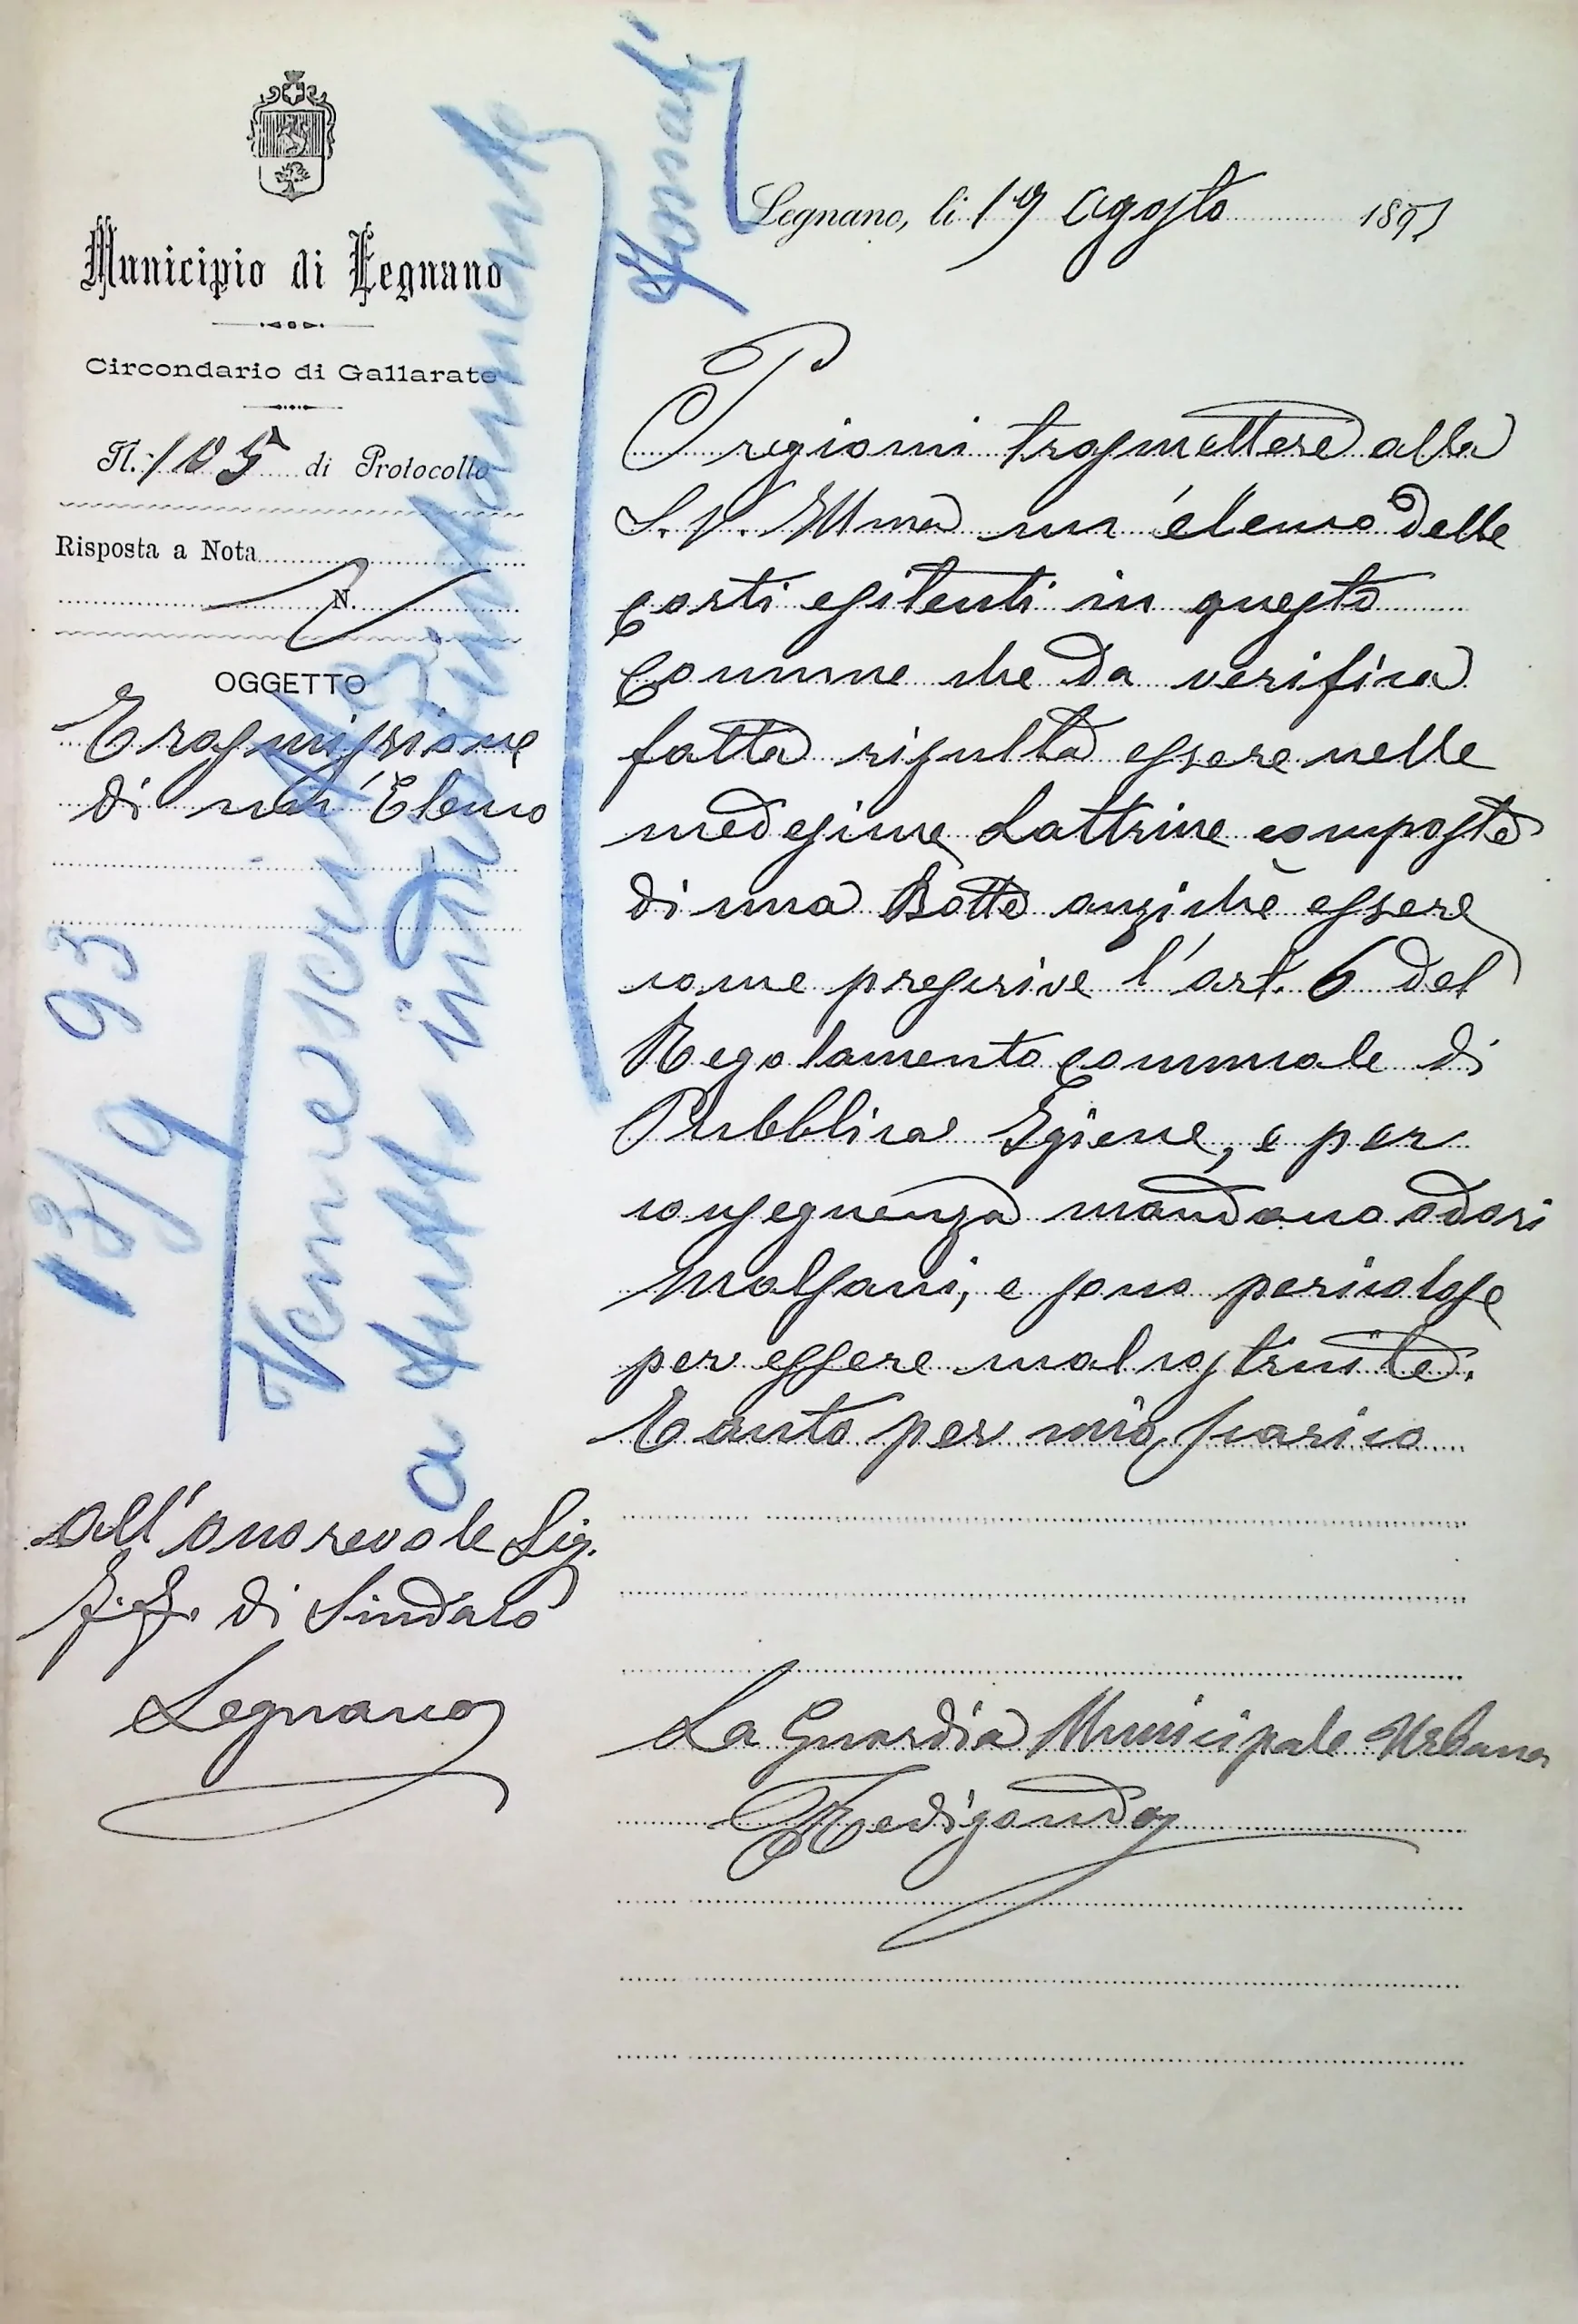 Municipio di Legnano
Circondario di Gallarate
N. 105 di Protocollo
Risposta a Nota
N.
OGGETTO
Trasmissione
di un'Elenco
13/9 93
Venne scritto
a tutti individualmente
All'onorevole Sig.
F.F. di Sindaco
Legnano
Legnano, li 19 Agosto 1893
Pregiomi trasmettere alla
S.V. Ill.ma un'elenco delle
Corti esitenti in questo
Comune che da verifica
fatta risulta essere nelle
medesime Lattrine composte
di una Botte anzichè essere
come prescrive l'art. 6 del
Regolamento Comunale di
Pubblica Igiene, e per
conseguenza mandano odori
malsani, e sono pericolose
per essere mal costruite.
Tanto per mio scarico
La Guardia Municipale Urbana